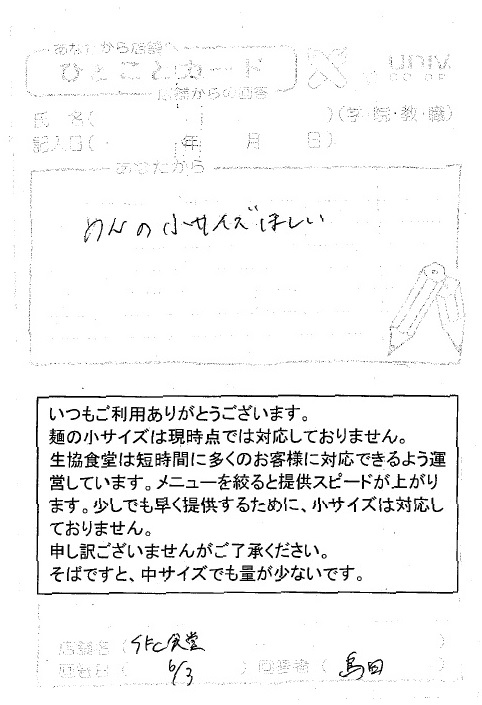 あなたから店舗へ
ひとことカード
店舗からの回答
氏 名( )(学・院・教・職)
記入日( 年 月 日)
あなたから
めんの小サイズほしい
いつもご利用ありがとうございます。
麺の小サイズは現時点では対応しておりません。
生協食堂は短時間に多くのお客様に対応できるよう運
営しています。メニューを絞ると提供スピードが上がり
ます。少しでも早く提供するために、小サイズは対応し
ておりません。
申し訳ございませんがご了承ください。
そばですと、中サイズでも量が少ないです。
店舗名( SFC食堂 )
回答日( 6/3 ) 回答者( 島田 )